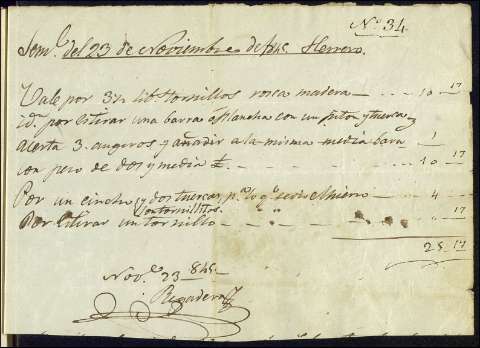 N.º 34
Sem.ª del 23 de Noviembre de 1845 Herrero.
Vale por lib. tornillos rosca madera 10 17
id. por estirar una barra a Plancha con un y tuerca y
3. augeros y añadir a la misma media bara 1
con peso de dos y media 10 17
Por un cincho y dos tuercas, p.ª lo q.e Hierro 4
con tornillitos
Por estirar un tornillo 17
25 17
Nov.e 23 845
Regadera